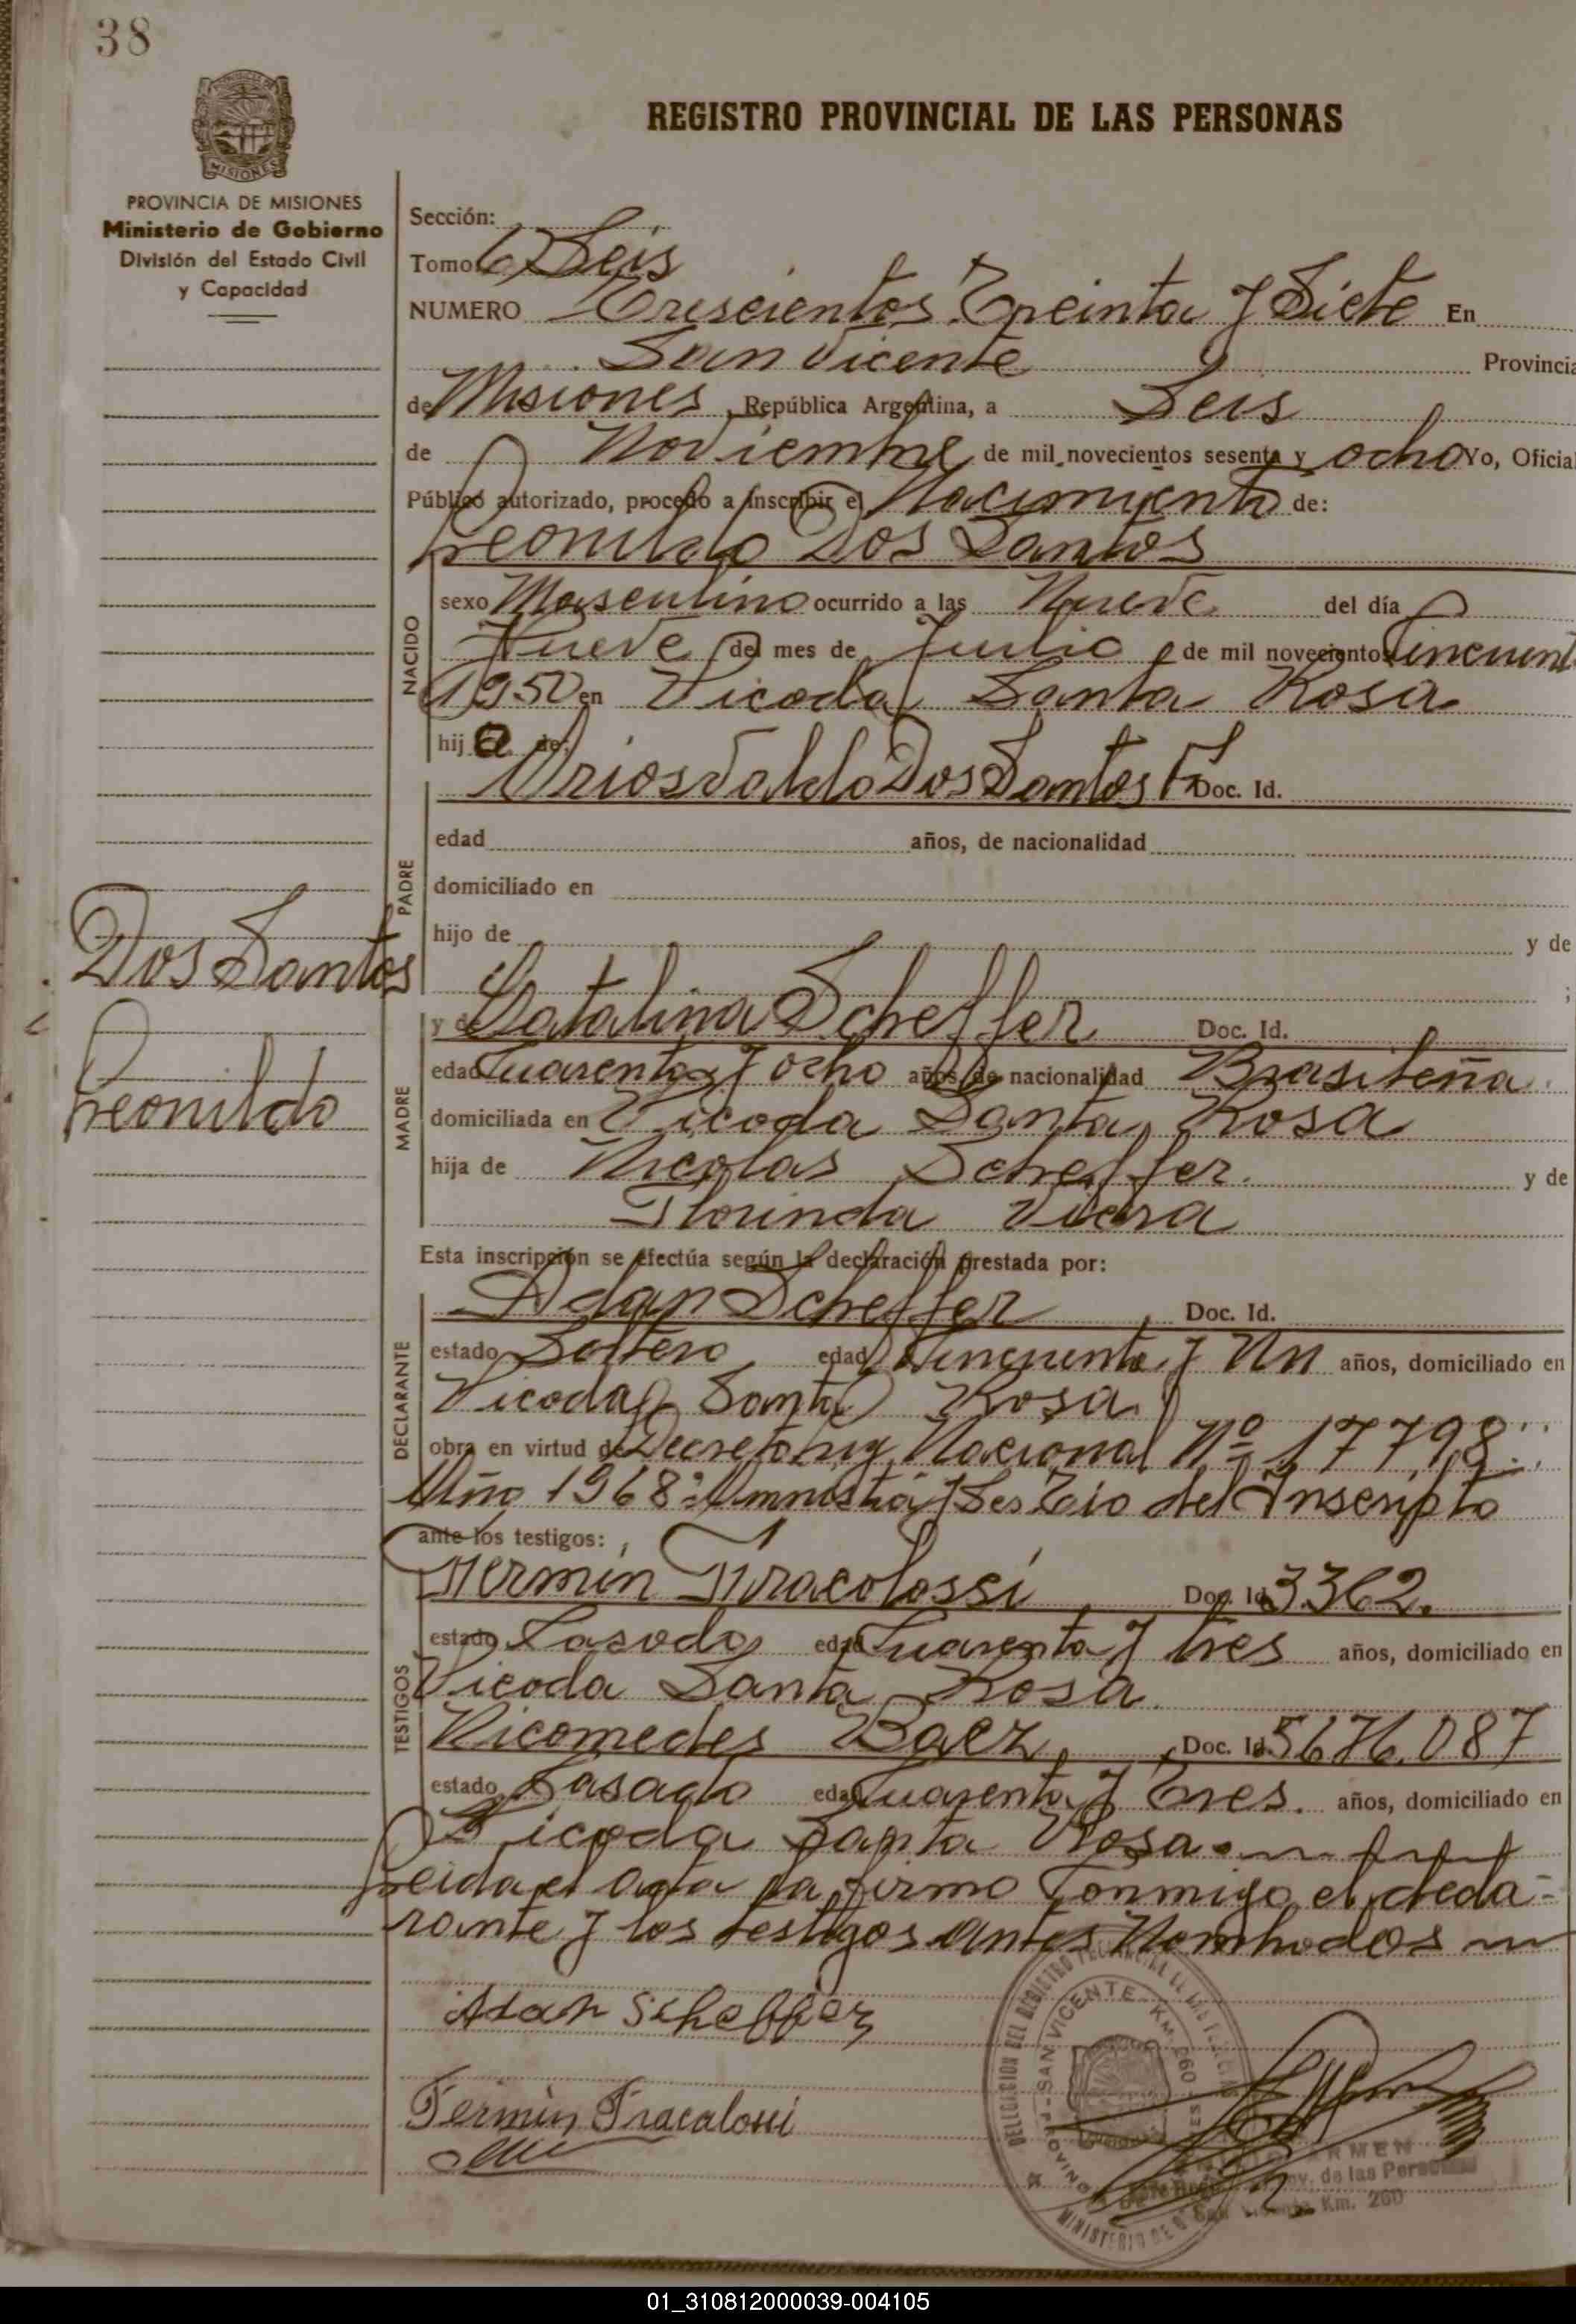 38
REGISTRO PROVINCIAL DE LAS PERSONAS
MISIONES
PROVINCIA DE MISIONES
Ministerio de Gobierno
División del Estado Civil
y Capacidad
Sección:
Tomo 6) Seis
NUMERO Trescientos Treinta y Siete En
San Vicente Provincia
de Misiones, República Argentina, a Seis
de Noviembre de mil novecientos sesenta y ocho Yo, Oficial
Público autorizado, procedo a inscribir el Nacimiento de:
Leonildo Dos Santos
NACIDO
sexo Masculino ocurrido a las Nueve del día
Nueve del mes de Julio de mil novecientos Cincuent
1950 en Picada Santa Rosa
hij o de:
Oriosvaldo Dos Santos Doc. Id.
PADRE
edad años, de nacionalidad
domiciliado en
hijo de y de
;
Dos Santos
Leonildo
MADRE
y de Catalina Scheffer Doc. Id.
edad Cuarenta y ocho años, de nacionalidad Brasileña
domiciliada en Picada Santa Rosa
hija de Nicolas Scheffer y de
Florinda Viera
Esta inscripción se efectúa según la declaración prestada por:
DECLARANTE
Adan Scheffer Doc. Id.
estado Soltero edad Cincuenta y Un años, domiciliado en
Picada Santa Rosa
obra en virtud de Decreto Ley Nacional Nº 17798
Año 1968 Amnistia Tio del Inscripto
ante los testigos:
TESTIGOS
Fermin Fracolossi Doc. Id 3362.
estado Casado edad Cuarenta y tres años, domiciliado en
Picada Santa Rosa
Nicomedes Baez Doc. Id. 5676.087
estado Casado edad Cuarenta y Tres. años, domiciliado en
Picada Santa Rosa.
Leida el acta la firmo Conmigo el decla-
rante y los testigos antes Nombrados
Adan Scheffer
Fermin Fracalossi
DELEGACION DEL REGISTRO PROVINCIAL DE LAS PERSONAS
SAN VICENTE KM. 260
MINISTERIO DE
Prov. de las Personas
San Vicente Km. 260
01_310812000039-004105